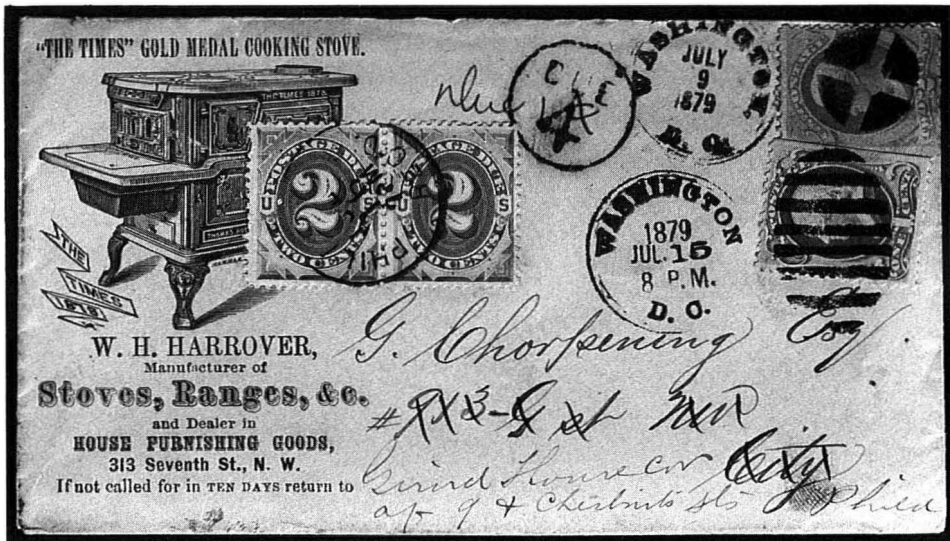 "THE TIMES" GOLD MEDAL COOKING STOVE.
THE TIMES 1878
THE
TIMES
1878
W. H. HARROVER,
Manufacturer of
Stoves, Ranges, &c.
and Dealer in
HOUSE FURNISHING GOODS,
313 Seventh St., N. W.
If not called for in TEN DAYS return to
U POSTAGE DUE S
2
U POSTAGE DUE S
2
PHI
Due
DUE
4
WASHINGTON
JULY
9
1879
D. C.
WASHINGTON
1879
JUL. 15
8 P.M.
D. C.
G. Chorpening Esq
# 913 G st NW
City
Girird House cor
of 9 & Chestnuts sts Phila